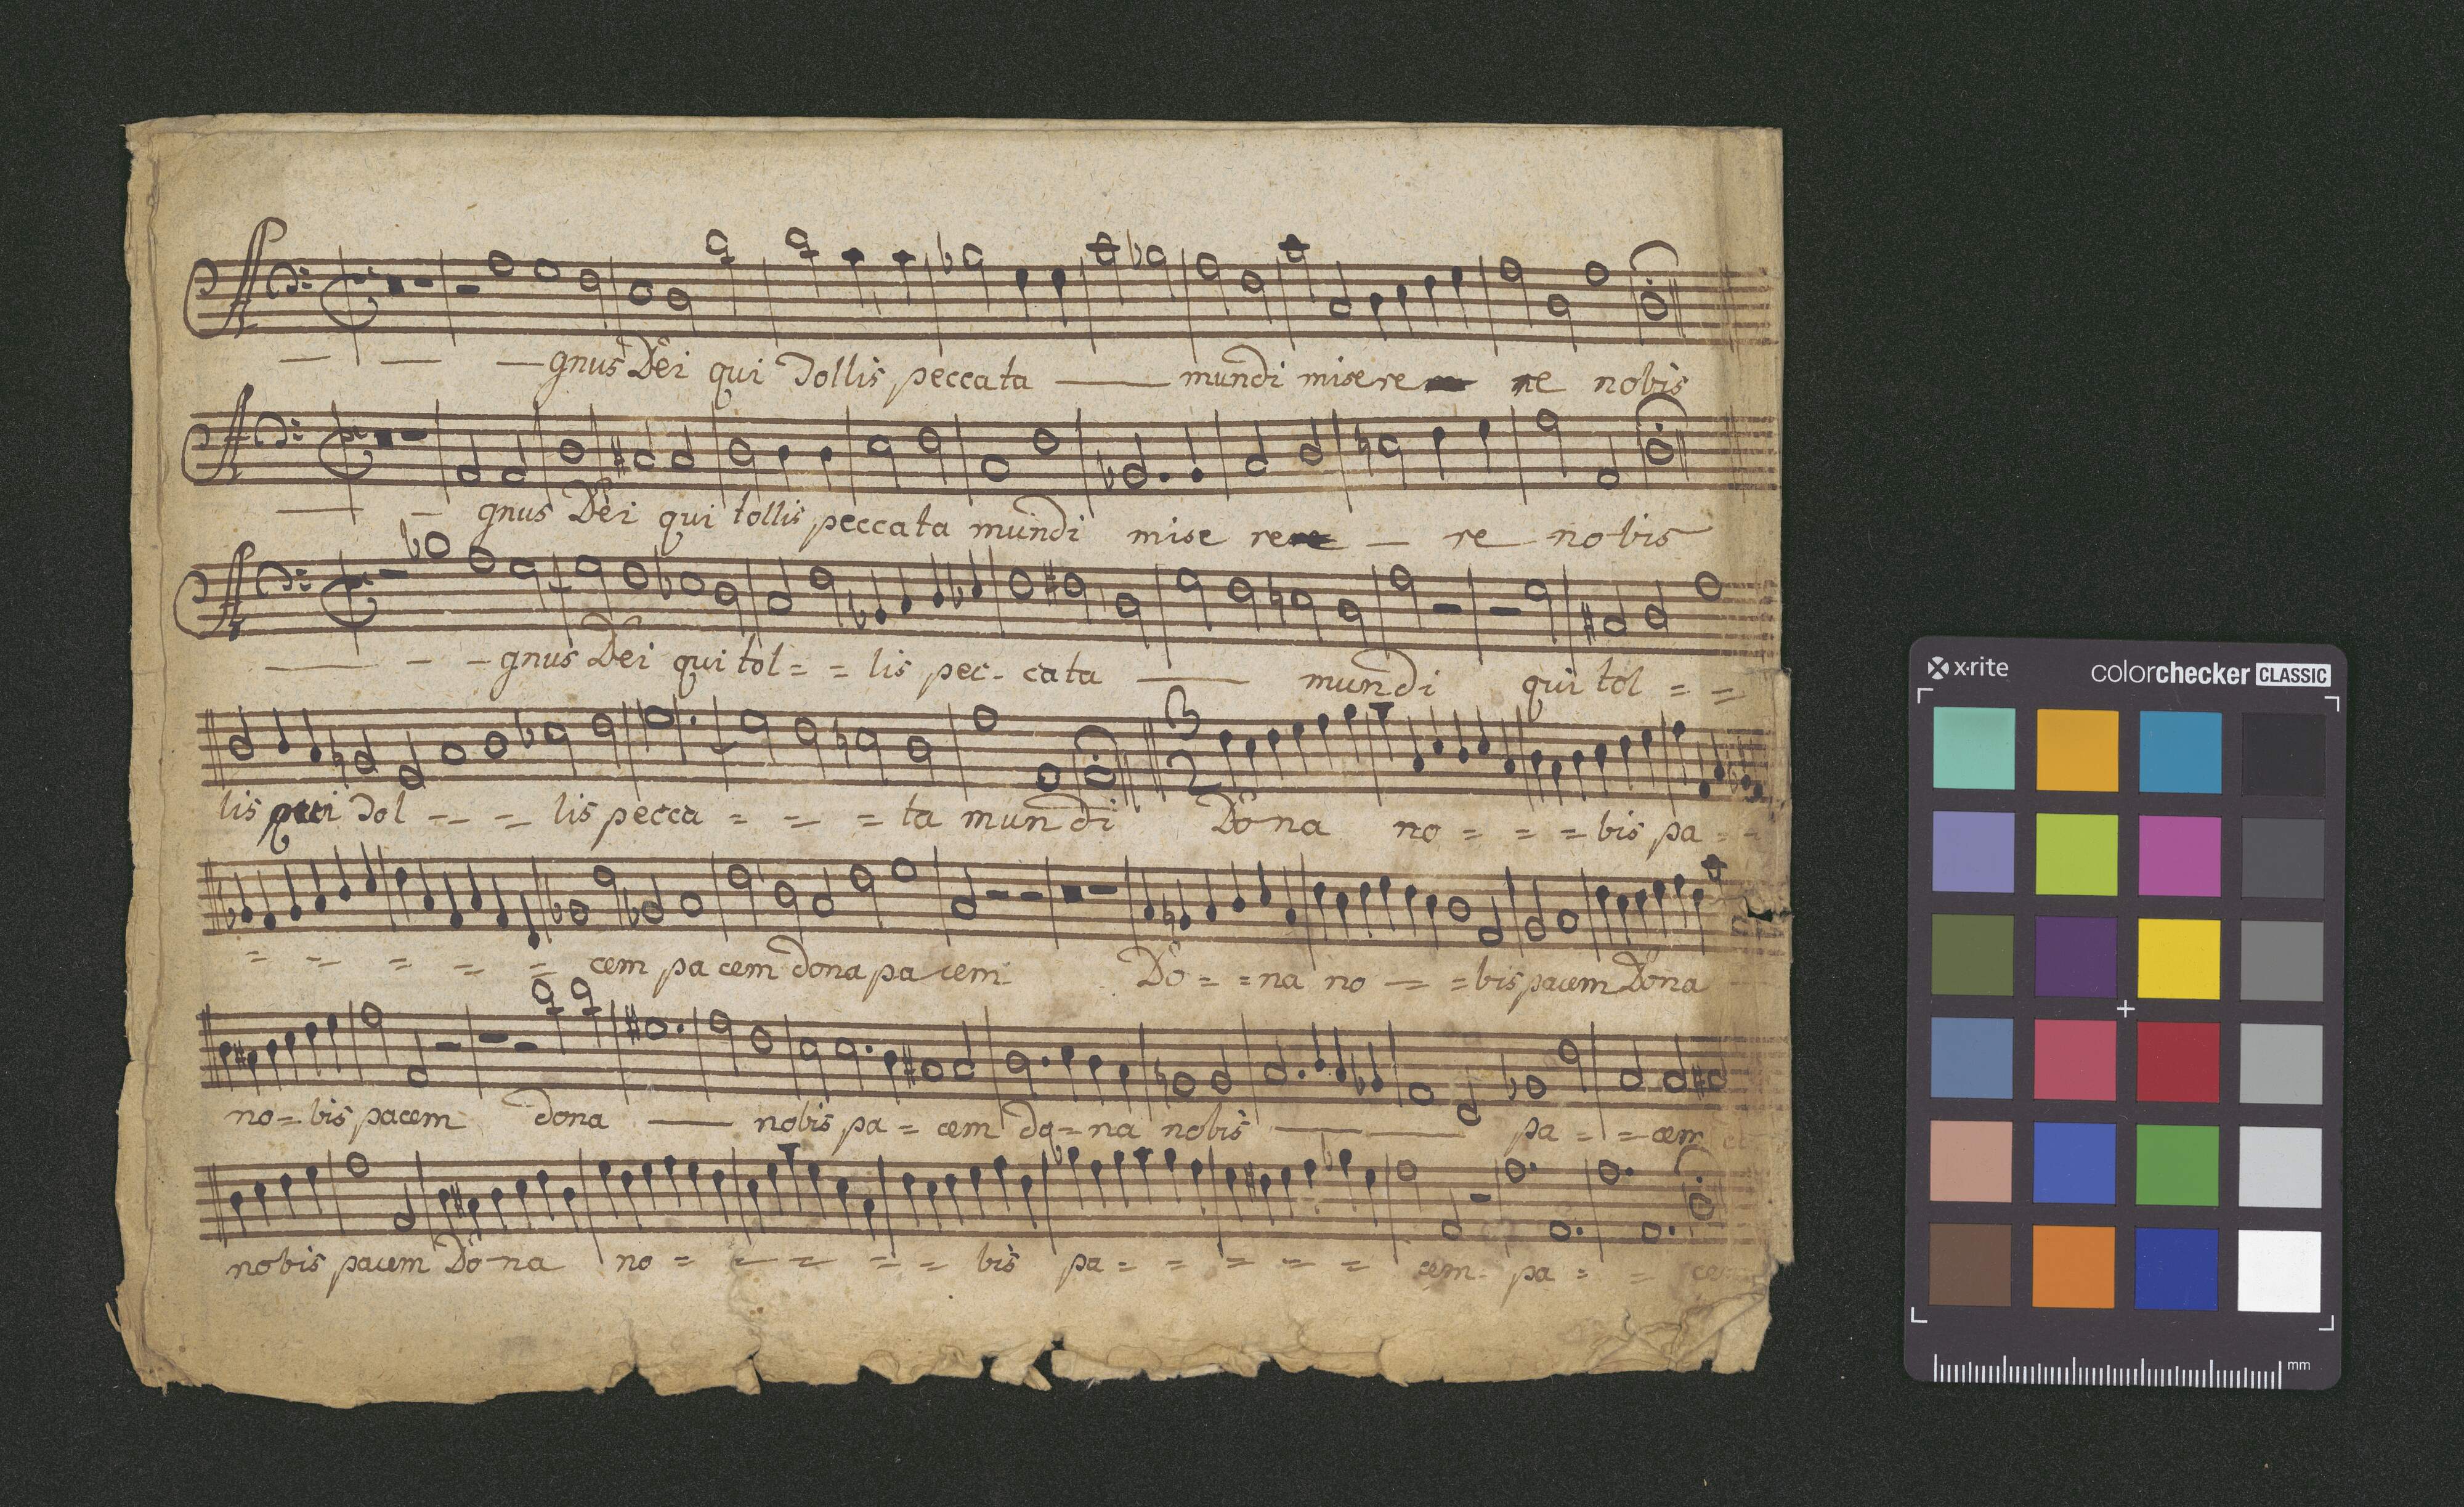 — — — gnus Dei qui Tollis peccata — mundi misere re nobis
— — gnus Dei qui tollis peccata mundi mise re — re nobis
— — — gnus Dei qui tol = = lis pec - cata — mundi qui tol = =
3
2
lis qui Tol - - = lis pecca = = = ta mundi Dona no = = = bis pa = =
= = = = = cem pa cem dona pa cem Do = = na no — = bis pacem Dona
no = bis pacem dona — nobis pa = cem do = na nobis — — pa = = cem
nobis pacem Do na no = = = = = bis pa = = = = = cem pa = = cem
x·rite colorchecker CLASSIC
mm